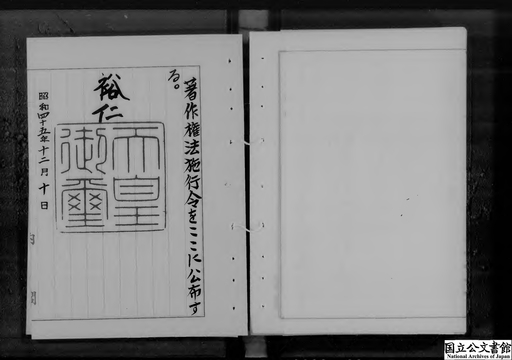 著作権法施行令をここに公布す
る。
裕仁
天皇
御璽
昭和四十五年十二月十日
国立公文書館
National Archives of Japan